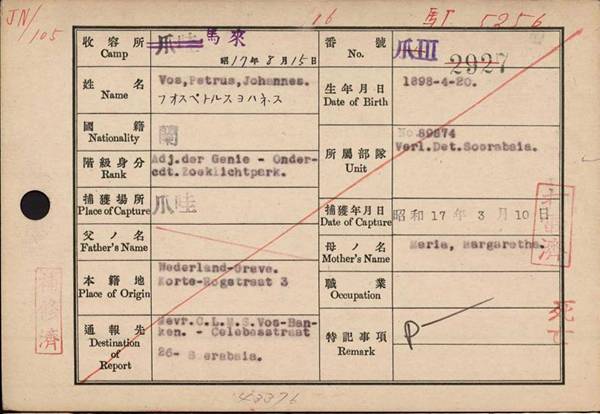 JN/105
16
馬T. 5256
收容所
Camp
爪哇 馬來
昭17年8月15日
番號
No.
爪III 2927
姓名
Name
Vos, Petrus, Johannes.
フオスペトルスヨハネス
生年月日
Date of Birth
1898-4-20.
國籍
Nationality
蘭
所屬部隊
Unit
No.89874
Verl.Det.Soerabaia.
階級身分
Rank
Adj.der Genie - Onder-
cdt.Zoeklichtpark.
捕獲場所
Place of Capture
爪哇
捕獲年月日
Date of Capture
昭和17年3月10日
父ノ名
Father's Name
母ノ名
Mother's Name
Maria, Margaretha.
本籍地
Place of Origin
Nederland-Grave.
Korte-Rogstraat 3
職業
Occupation
通報先
Destination of Report
Mevr.C.L.W.S.Vos-Ban-
ken. - Celebesstraat
26- Soerabaia.
特記事項
Remark
P
補修濟
濟
死亡
43376